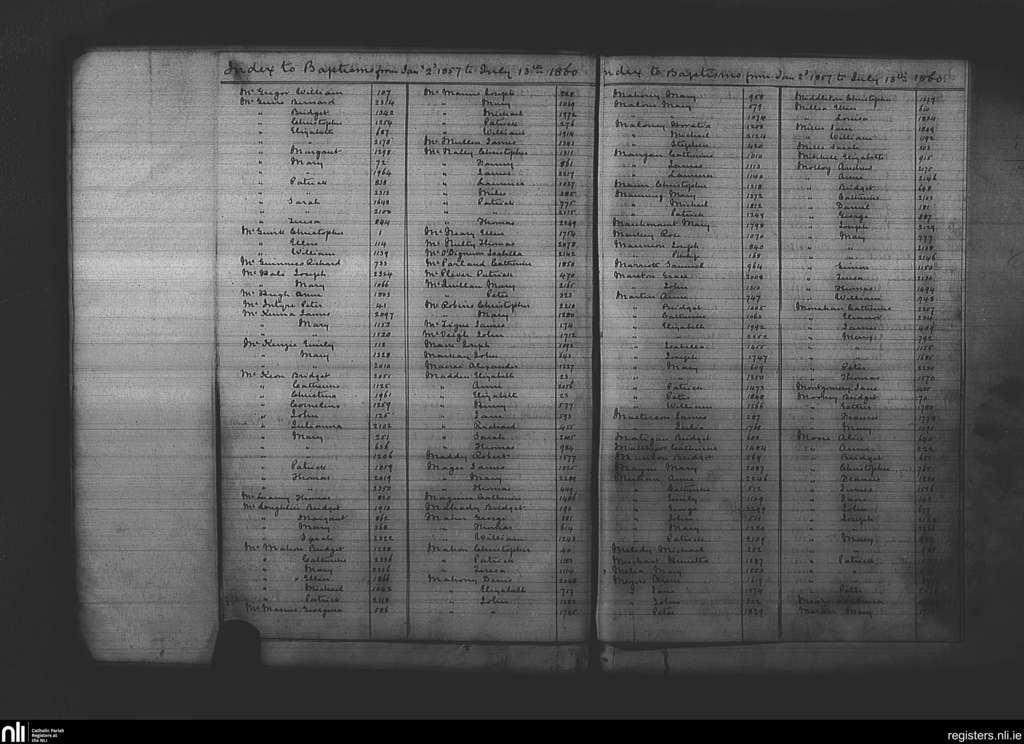 Index to Baptisms from Jany 2d 1857 to July 13th 1860
McGregor William 107
McGuire Bernard 2314
" Bridget 1242
" Christopher 1254
" Elizabeth 687
" " 2178
" Margaret 1298
" Mary 72
" " 1964
" Patrick 838
" " 2313
" Sarah 1648
" " 2100
" Teresa 844
McGuirk Christopher 1
" Ellen 114
" William 1139
McGuinness Richard 733
McHale Joseph 2324
" Mary 1066
McHugh Anne 1803
McIntyre Peter 241
McKenna James 2097
" Mary 1153
" " 1520
McKenzie Emily 118
" Mary 1328
" " 2010
McKeon Bridget 2051
" Catherine 1125
" Christina 1961
" Cornelius 1259
" John 125
" Julianna 2102
" Mary 251
" " 656
" " 1206
" Patrick 1059
" Thomas 2019
" " 2350
McLearny Thomas
McLoughlin Bridget 1913
" Margaret 862
" Mary 260
" Sarah 2322
McMahon Bridget 1220
" Catherine
" Mary
" Ellen 1266
" Michael 1042
" Patrick
McManus Georgina 586
McManus Joseph
" Mary 1029
" Michael 1972
" Patrick 276
" William 1914
McMullen James 1341
McNally Christopher 1313
" Fanny 861
" James 2217
" Laurence 1037
" Miles 285
" Patrick 775
" " 2115
" Thomas 2249
McNary Ellen 1754
McNulty Thomas 2078
McO'Dignum Isabella 2142
McParland Catherine 1850
McPlever Patrick 470
McQuillan Mary 2165
" Peter 323
McRobins Christopher 2210
" Mary 1280
McTigue James 174
McVeigh John 1712
Mace Joseph 1092
Mackay John 243
Macrae Alexander 1227
Madden Elizabeth 23
" Anne 2076
" Elizabeth 23
" Fanny 577
" Jane 593
" Richard 455
" Sarah 2005
" Thomas 924
Maddy Robert 1577
Magee James 1025
" Mary 2200
" Thomas 449
Maginn Catherine 1406
Mahady Bridget 190
Maher George 881
" Thomas 614
" William 1243
Mahon Christopher 40
" Patrick 1103
" Teresa 1114
Mahony Denis
" Elizabeth 717
" John
" " 1785
Index to Baptisms from Jany 2d 1857 to July 13th 1860
Mahony Mary 958
Malone Mary 679
" " 1074
Maloney Horatio 1200
" Michael 2124
" Stephen 420
Mangan Catherine 1010
" James 1113
" Laurence 1140
Mann Christopher 1318
Manning Mary 1372
" Michael 1812
" Patrick 1249
Marchmont Mary 1798
Markey Rose 1070
Marmion Joseph 840
" Philip 168
Marriott Samuel 964
Marston Grace 2008
" John 1310
Martin Anne 747
" Bridget 1005
" Catherine 1063
" Elizabeth 1992
" " 2252
" Isabella 1455
" Joseph 1747
" Mary 609
" " 1350
" Patrick 1473
" Peter 1840
" William 1566
Masterson James 207
" Julia 1768
Matigan Bridget 600
Matthews Catherine 1484
Maunton Bridget 269
Mayne Mary 2087
Meehan Anne 2246
" Catherine 571
" Emily 1109
" George 2299
" John 1511
" Mary 1230
" Patrick 2109
Melody Michael 252
Merchant Henrietta 1287
Melia Mary 1502
Meyers Anne 1619
" Jane 1374
" John 312
" Peter 1829
Middleton Christopher 1239
Miller Ellen
" Louisa
Miles Jane 1809
" William 1092
Mills Sarah 202
Mitchell Elizabeth 915
Molloy Andrew 2175
" Anne 2146
" Bridget 608
" Catherine 2103
" Daniel 181
" George 887
" Joseph 2129
" Mary 777
" " 2138
" " 2146
" Simon 1150
" Teresa 2136
" Thomas 1494
" William 1942
Monahan Catherine 2307
" Eleanor
" James 409
" Mary 792
" " 1155
" " 1685
" Peter
" Thomas 1570
Montgomery Jane
Mooney Bridget
" Esther 1780
" Frances
" Mary
Moore Alice 640
" Anne
" Bridget 651
" Christopher 765
" Frances
" James
" Jane
" John
" Joseph
" Mary
" Patrick
" Peter
Moran Mary
NLI
Catholic Parish
Registers at
the NLI
registers.nli.ie